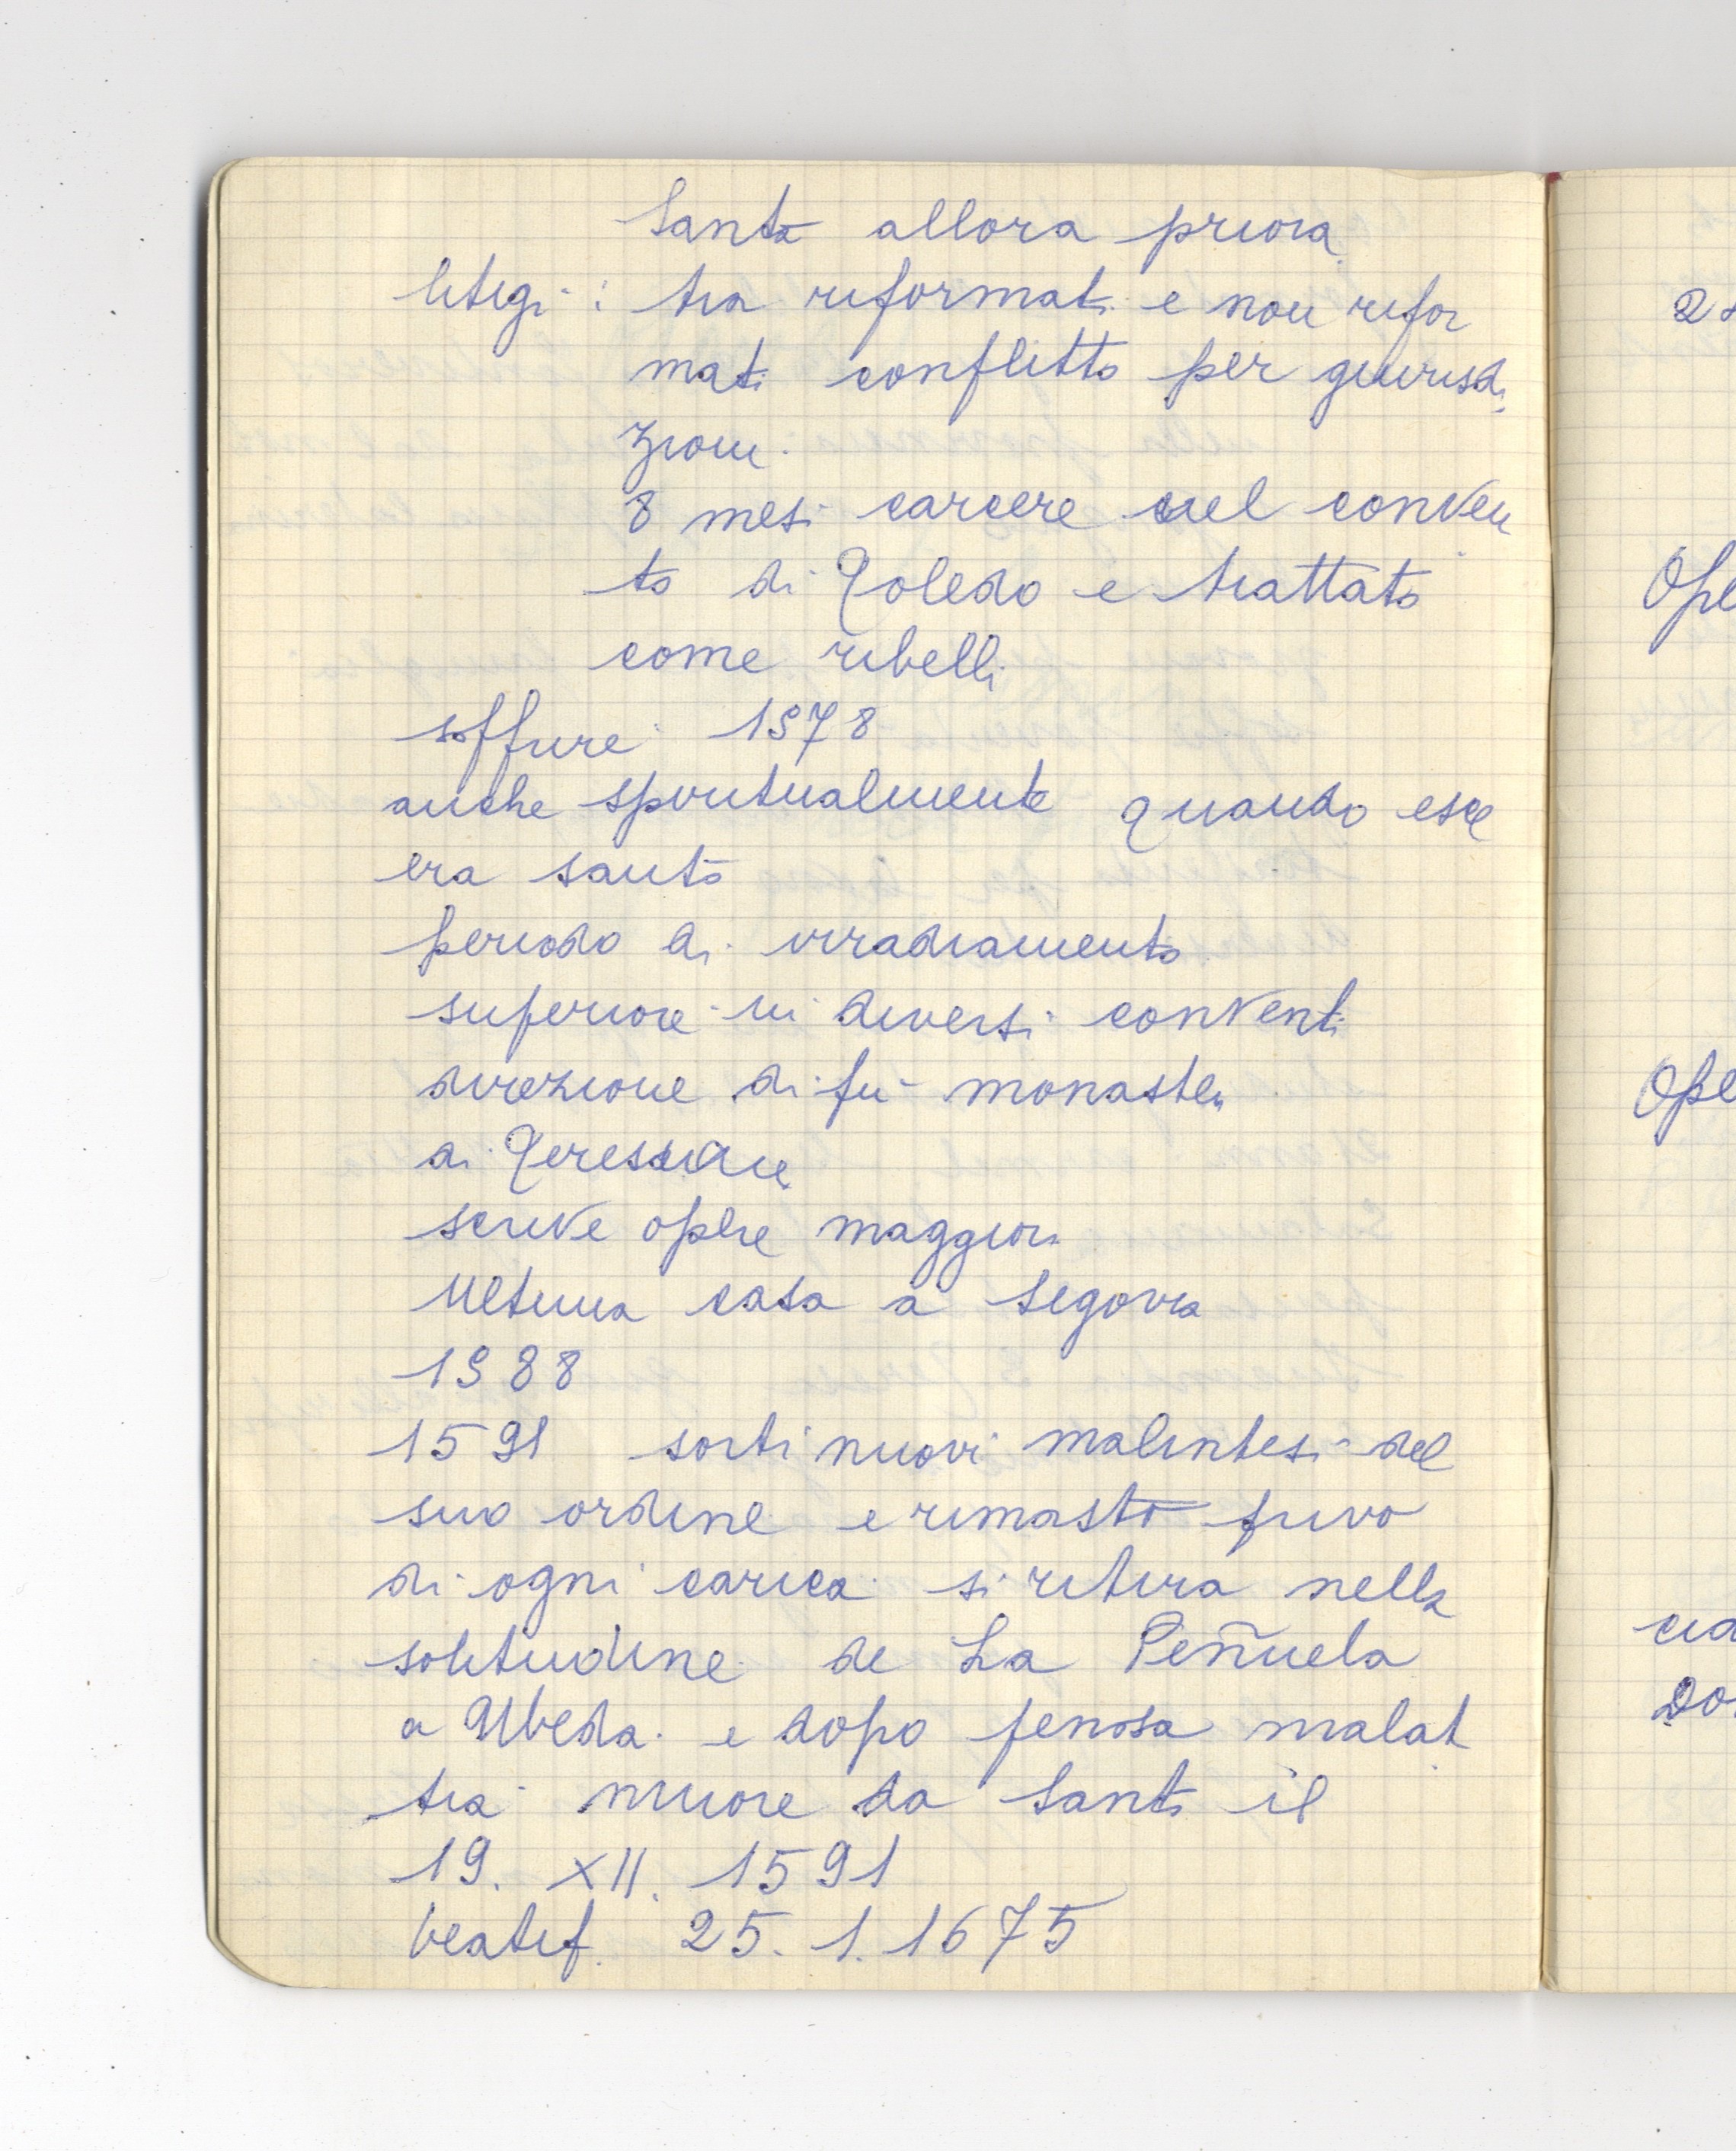 Santa allora priora
litigi : tra riformati e non rifor
mati conflitto per giurisdi
zioni.
8 mesi carcere nel conven
to di Toledo e trattato
come ribelli
soffrire 1578
anche spiritualmente quando esce
era santo
periodo di irradiamento
superiore in diversi conventi
direzione di più monasteri
di Teresiane
scrive opere maggiori
Ultima casa a Segovia
1588
1591 sorti nuovi malintesi del
suo ordine e rimasto privo
di ogni carica si ritira nella
solitudine de La Peñuela
a Ubeda. e dopo penosa malat
tia muore da Santo il
19. XII. 1591
beatif. 25. 1. 1675
Ope
Ope